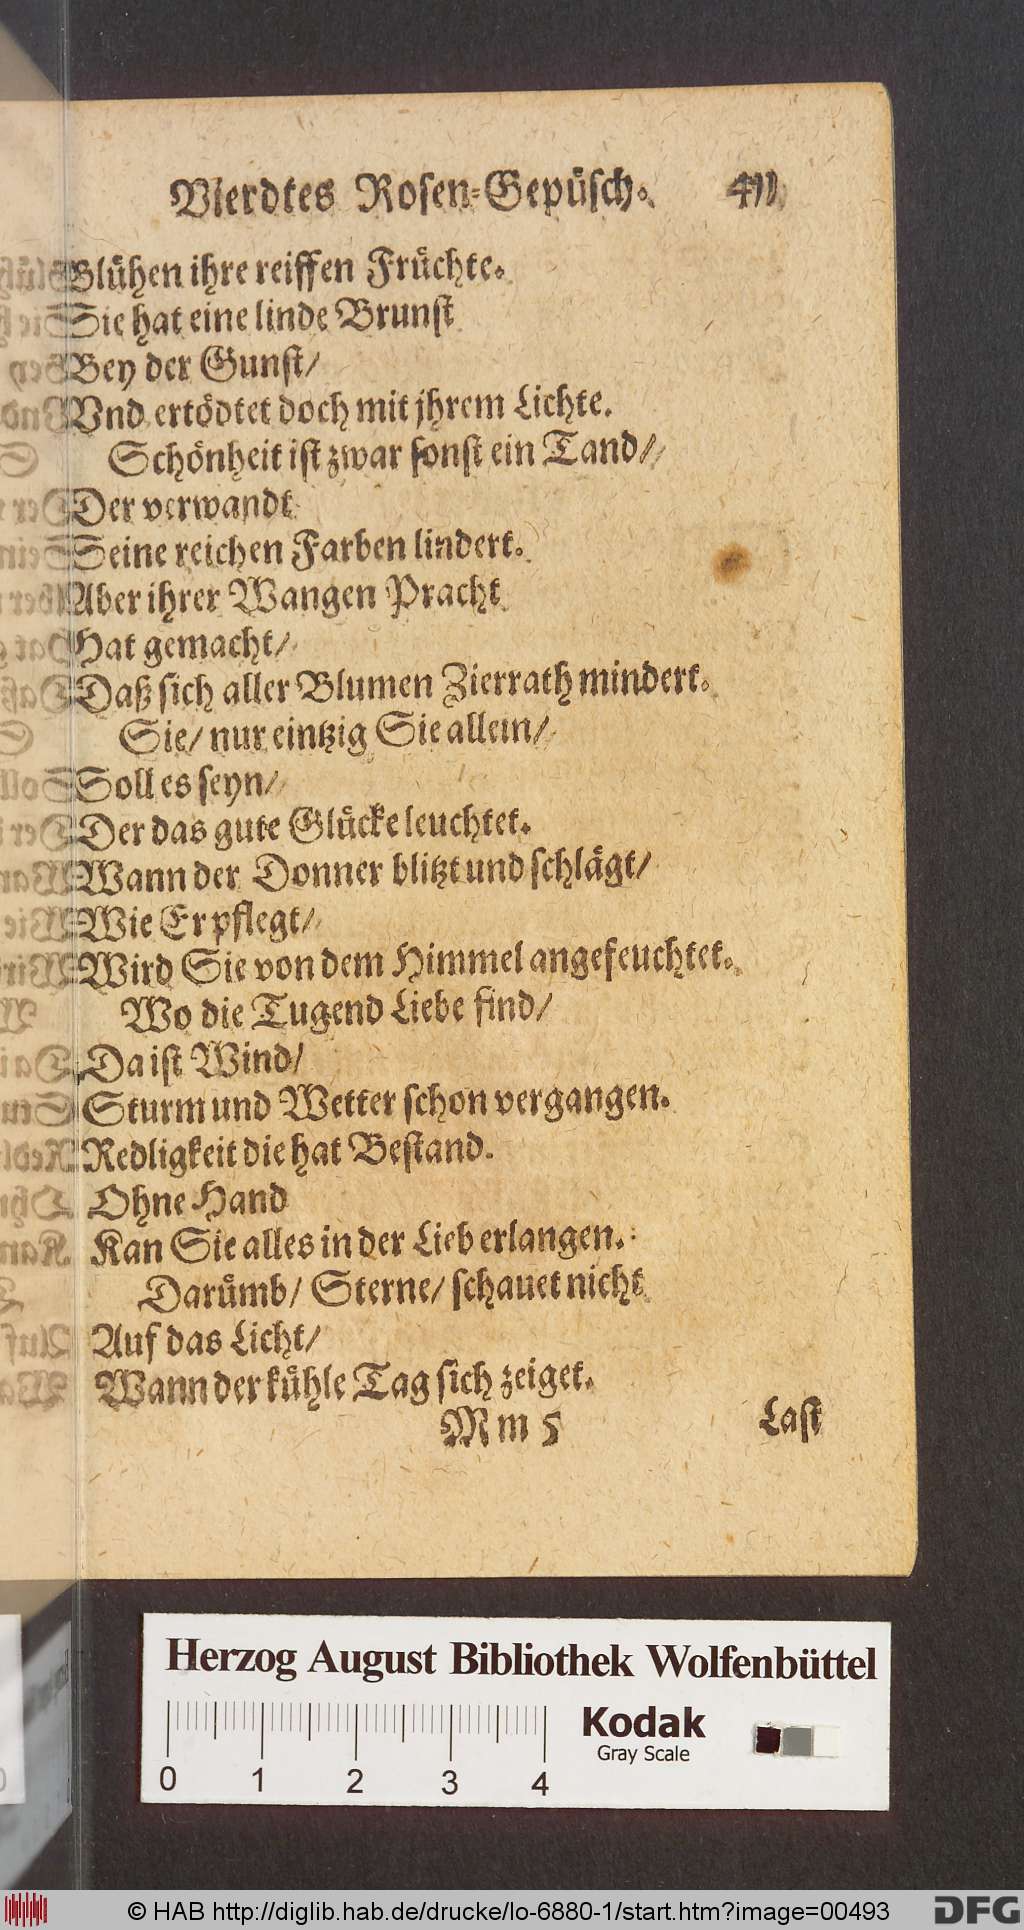 Vierdtes Rosen-Gepüsch. 411
Blühen ihre reiffen Früchte.
Sie hat eine linde Brunst
Bey der Gunst/
Vnd ertödtet doch mit jhrem Lichte.
Schönheit ist zwar sonst ein Tand/
Der verwandt
Seine reichen Farben lindert.
Aber ihrer Wangen Pracht
Hat gemacht/
Daß sich aller Blumen Zierrath mindert.
Sie/ nur eintzig Sie allein/
Soll es seyn/
Der das gute Glücke leuchtet.
Wann der Donner blitzt und schlägt/
Wie Er pflegt/
Wird Sie von dem Himmel angefeuchtet.
Wo die Tugend Liebe find/
Da ist Wind/
Sturm und Wetter schon vergangen.
Redligkeit die hat Bestand.
Ohne Hand
Kan Sie alles in der Lieb erlangen.
Darümb/ Sterne/ schauet nicht
Auf das Licht/
Wann der kühle Tag sich zeiget.
Mm 5 Last
Herzog August Bibliothek Wolfenbüttel
Kodak
Gray Scale
0 1 2 3 4
© HAB http://diglib.hab.de/drucke/lo-6880-1/start.htm?image=00493
DFG